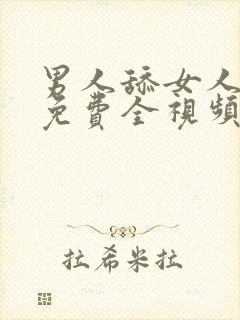 男人舔女人
免費全視頻
拉希米拉